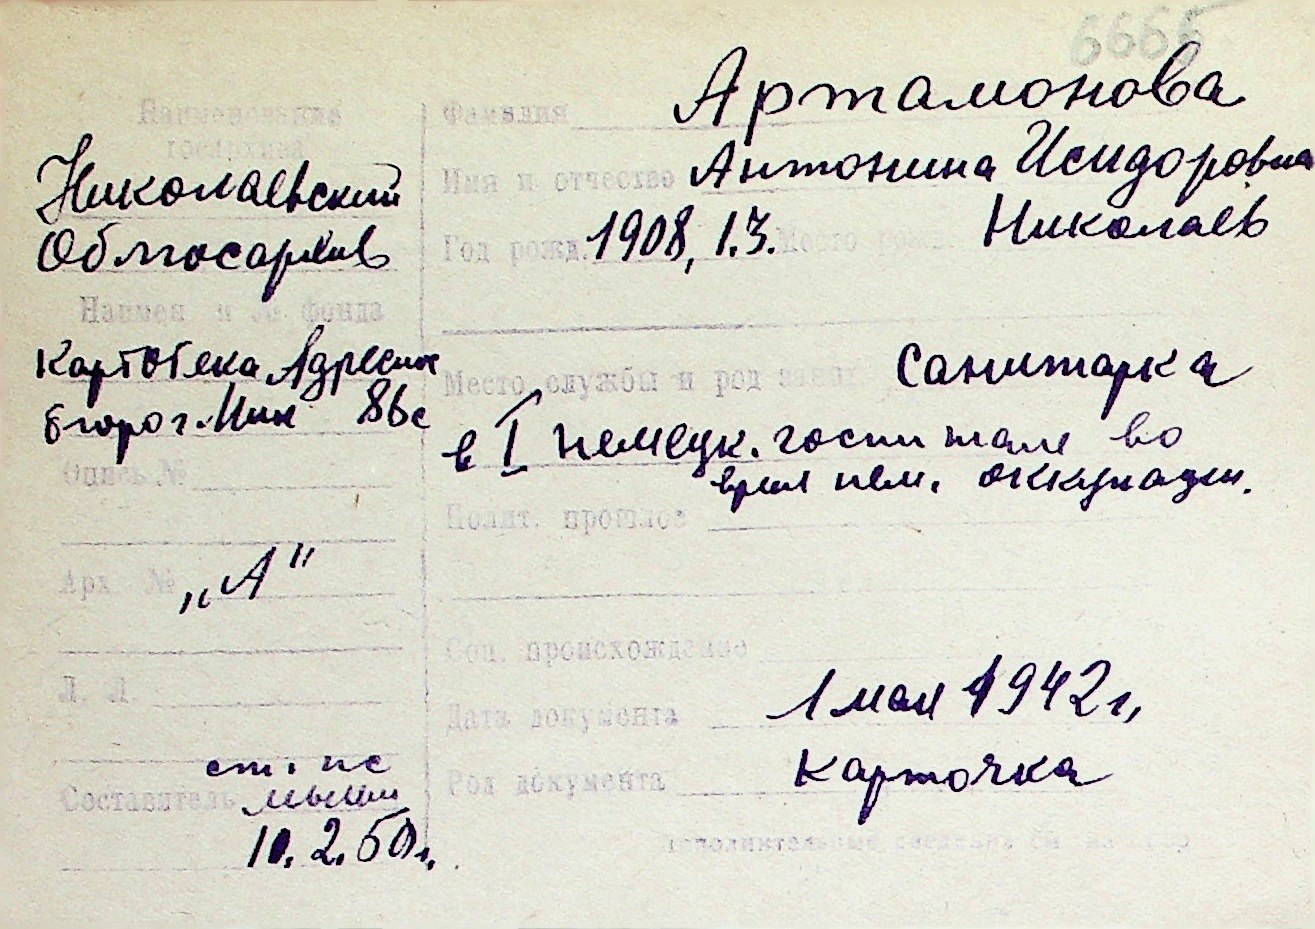 6665
Наименование
госархива
Николаевский
Облгосархив
Наимен и № фонда
Картотека Адресн
86с
Опись №
Арх. № „А"
Л. Л.
ст.
Составитель
10. 2. 50 г.
Фамилия Артамонова
Имя и отчество Антонина Исидоровна
Год рожд. 1908, 1.3. Место рожд. Николаев
Место службы и род занят Санитарка
в I немецк. госпитале во
время нем. оккупации.
Полит. прошлое
Соц. происхождение
Дата документа 1 мая 1942 г,
Род документа Карточка
дополнительные сведения см на обор